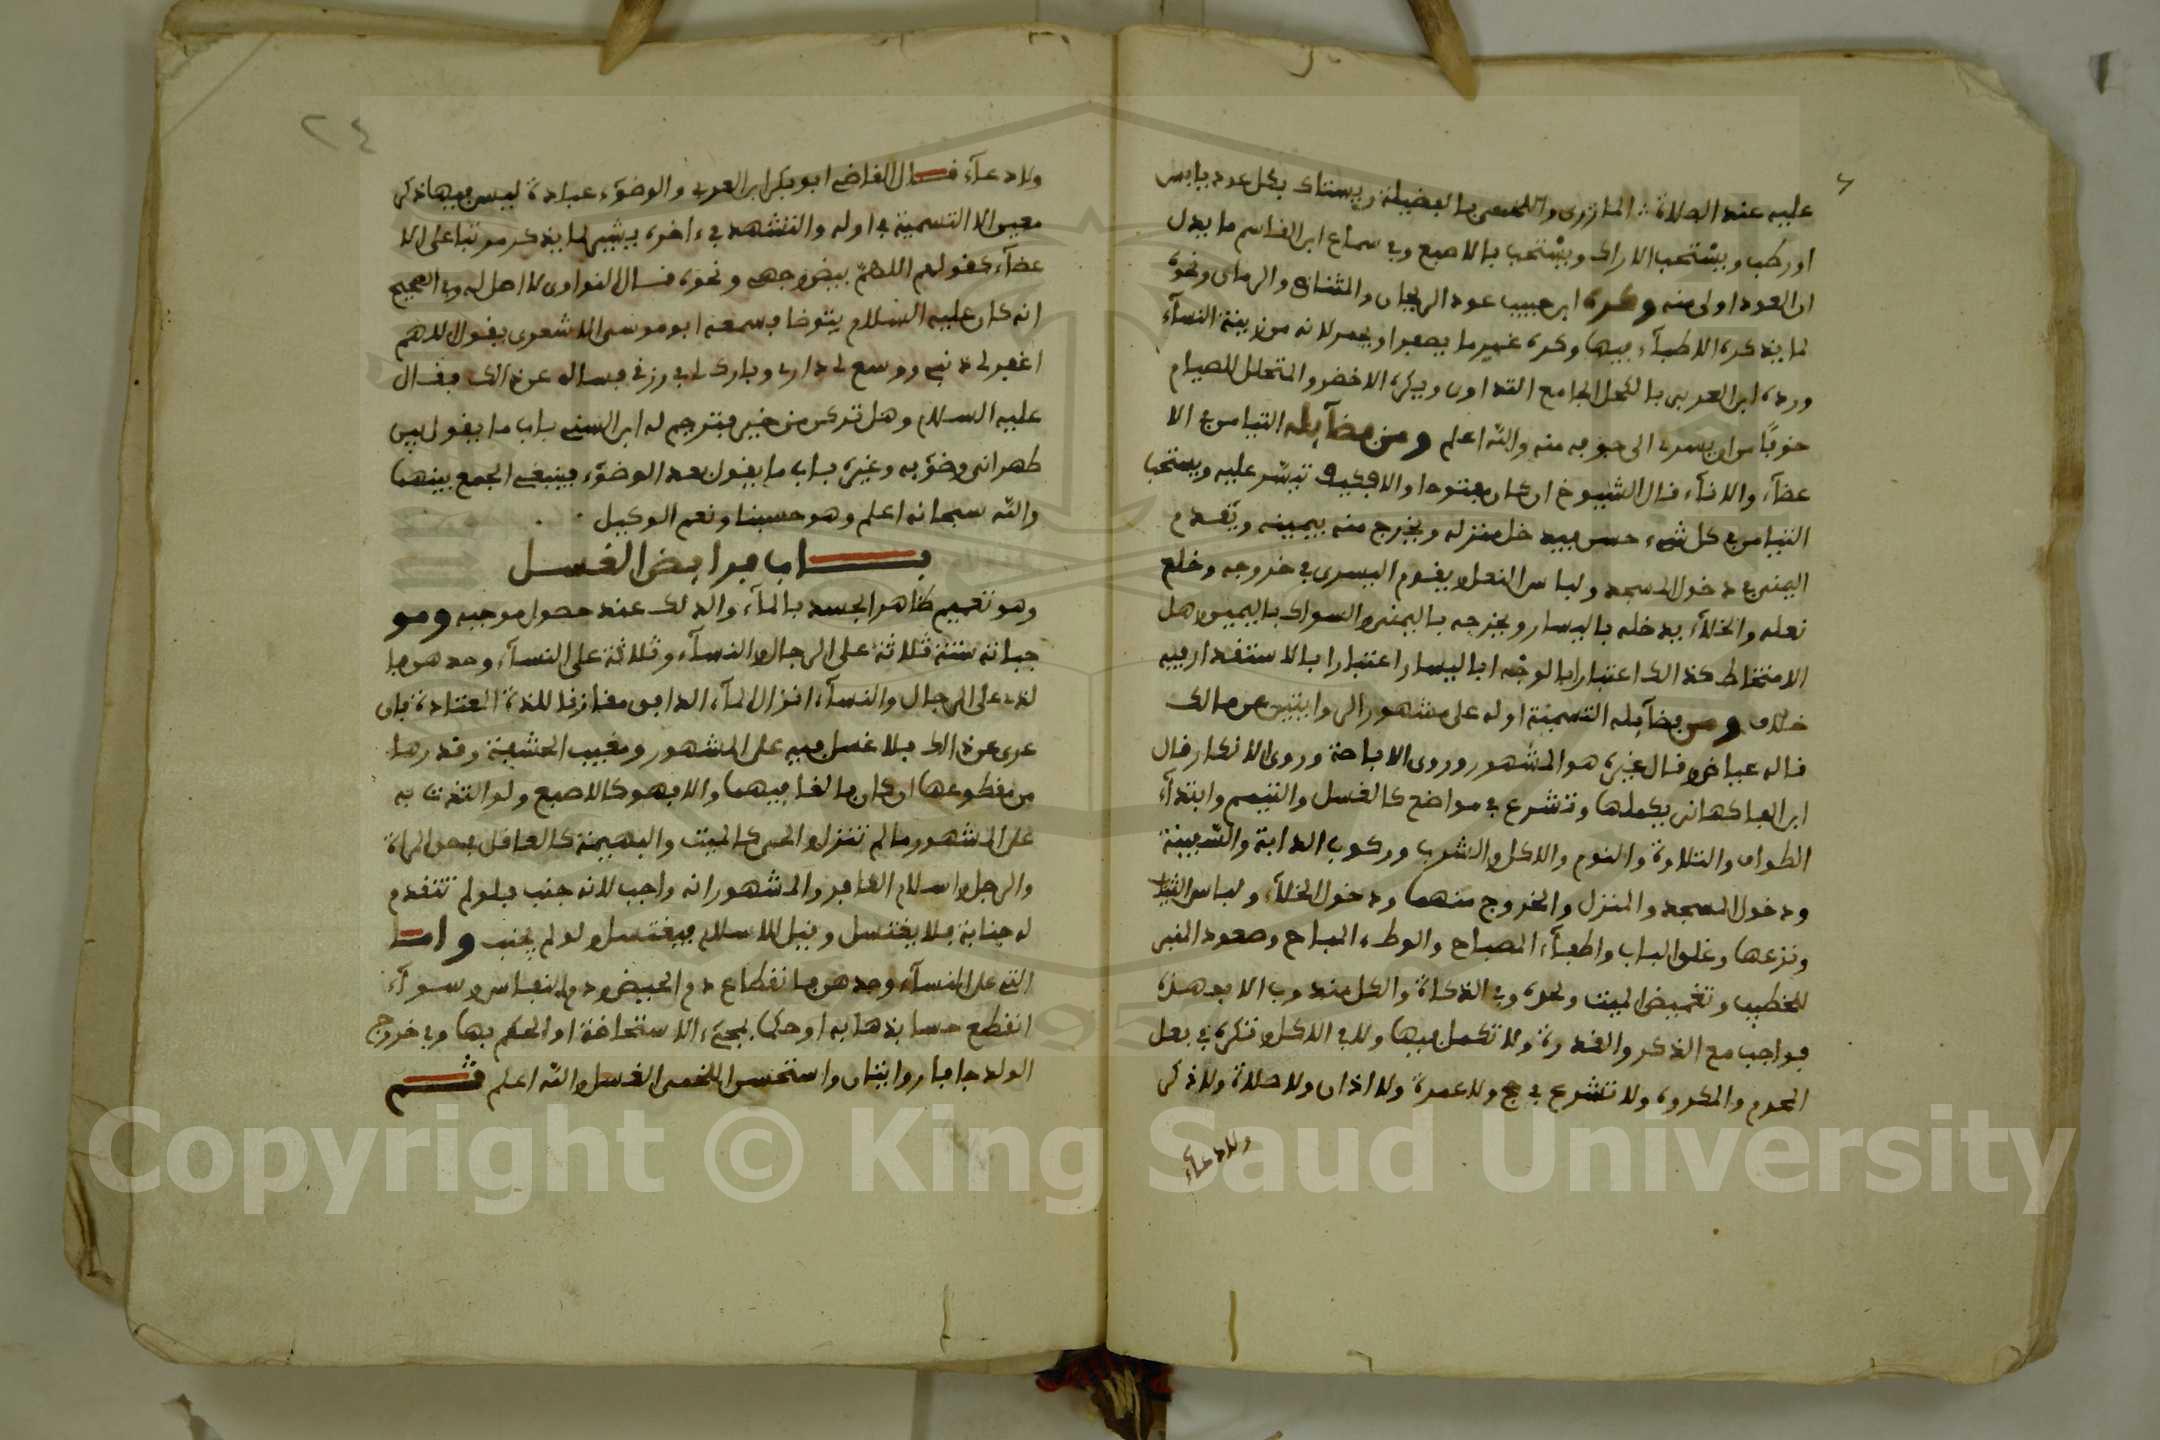 عليه عند الصلاة المازري واللخمي بالفضيلة ويستاك بكل عود يابس
او رطب ويستحب الاراك ويستحب بالاصبع وفي سماع ابن القاسم ما يدل
ان العود اولى منه وكره ابن حبيب عود الريحان والرمان ونحوه
لما يذكره الاطباء فيها وكره غيره ما يصفر او يحمر لانه من زينة النساء
ورده ابن العربي بالكحل الجامع التداوي ويكره الاخضر والمتحلل للصيام
خوفا من ان يسري الى جوفه منه والله اعلم ومن فضائله التيامن في الا
عضاء والاناء قال الشيوخ ان كان مفتوحا والا فكيف تيسر عليه ويستحب
التيامن في كل شيء حسن فيدخل منزله ويخرج منه بيمينه ويقدم
اليمنى في دخول المسجد ولباس النعل ويقدم اليسرى في خروجه وخلع
نعله والخلاء يدخله باليسار ويخرجه باليمنى والسواك باليمين وهل
الامتخاط كذالك اعتبارا بالوجه او باليسار اعتبارا بالاستقذار فيه
خلاف ومن فضائله التسمية اوله على مشهور الروايتين عن مالك
قاله عياض وقال غيره هو المشهور وروى الاباحة وروى الانكار قال
ابن الفاكهاني يكملها وتشرع في مواضع كالغسل والتيمم وابتداء
الطواف والتلاوة والنوم والاكل والشرب وركوب الدابة والسفينة
ودخول المسجد والمنزل والخروج منهما ودخول الخلاء ولباس الثياب
ونزعها وغلق الباب واطفاء المصباح والوطء المباح وصعود المنبر
للخطيب وتغميض الميت ولحده وفي الذكاة والكل مندوب الا بهذه
فواجب مع الذكر والقدرة ولا تكمل فيها ولا في الاكل وتكره في فعل
المحرم والمكروه ولا تشرع في حج ولا عمرة ولا اذان ولا صلاة ولا ذكر
ولا دعاء
٢٤
ولا دعاء قال القاضي ابو بكر ابن العربي والوضوء عبادة ليس فيها ذكر
معين الا التسمية في اوله والتشهد في ءاخره يشير لما يذكر مرتبا على الا
عضاء كقولهم اللهم بيض وجهي ونحوه قال النواوي لا اصل له وفي الصحيح
انه كان عليه السلام يتوضا فسمعه ابو موسى الاشعري يقول اللهم
اغفر لي ذنبي ووسع لي داري وبارك لي في رزقي فساله عن ذالك فقال
عليه السلام وهل تركن من خير فترجم له ابن السني باب ما يقول بين
ظهراني وضوءه وغيره باب ما يقول بعد الوضوء فينبغي الجمع بينهما
والله سبحانه اعلم وهو حسبنا ونعم الوكيل
باب فرايض الغسل
وهو تعميم ظاهر الجسد بالماء والدلك عند حصول موجبه ومو
جباته ستة ثلاثة على الرجال والنساء وثلاثة على النساء وحدهن فا
لذي على الرجال والنساء انزال الماء الدافق مقارنا للذة المعتادة فان
عرى عن ذالك فلا غسل فيه على المشهور ومغيب الحشفة وقدرها
من مقطوعها ان كان بالغا فيهما والا فهو كالاصبع ولو التذت به
على المشهور ما لم تنزل والحي كالميت والبهيمة كالعاقل في المراة
والرجل واسلام الكافر والمشهور انه واجب لانه جنب فلو لم تتقدم
له جنابة فلا يغتسل وقيل للاسلام فيغتسل ولو لم يجنب واما
التي على النساء وحدهن فانقطاع دم الحيض ودم النفاس وسواء
انقطع حسا بذهابه او حكما بمجيء الاستحاضة او الحكم بها وفي خروج
الولد جافا روايتان واستحسن اللخمي الغسل والله اعلم ثم